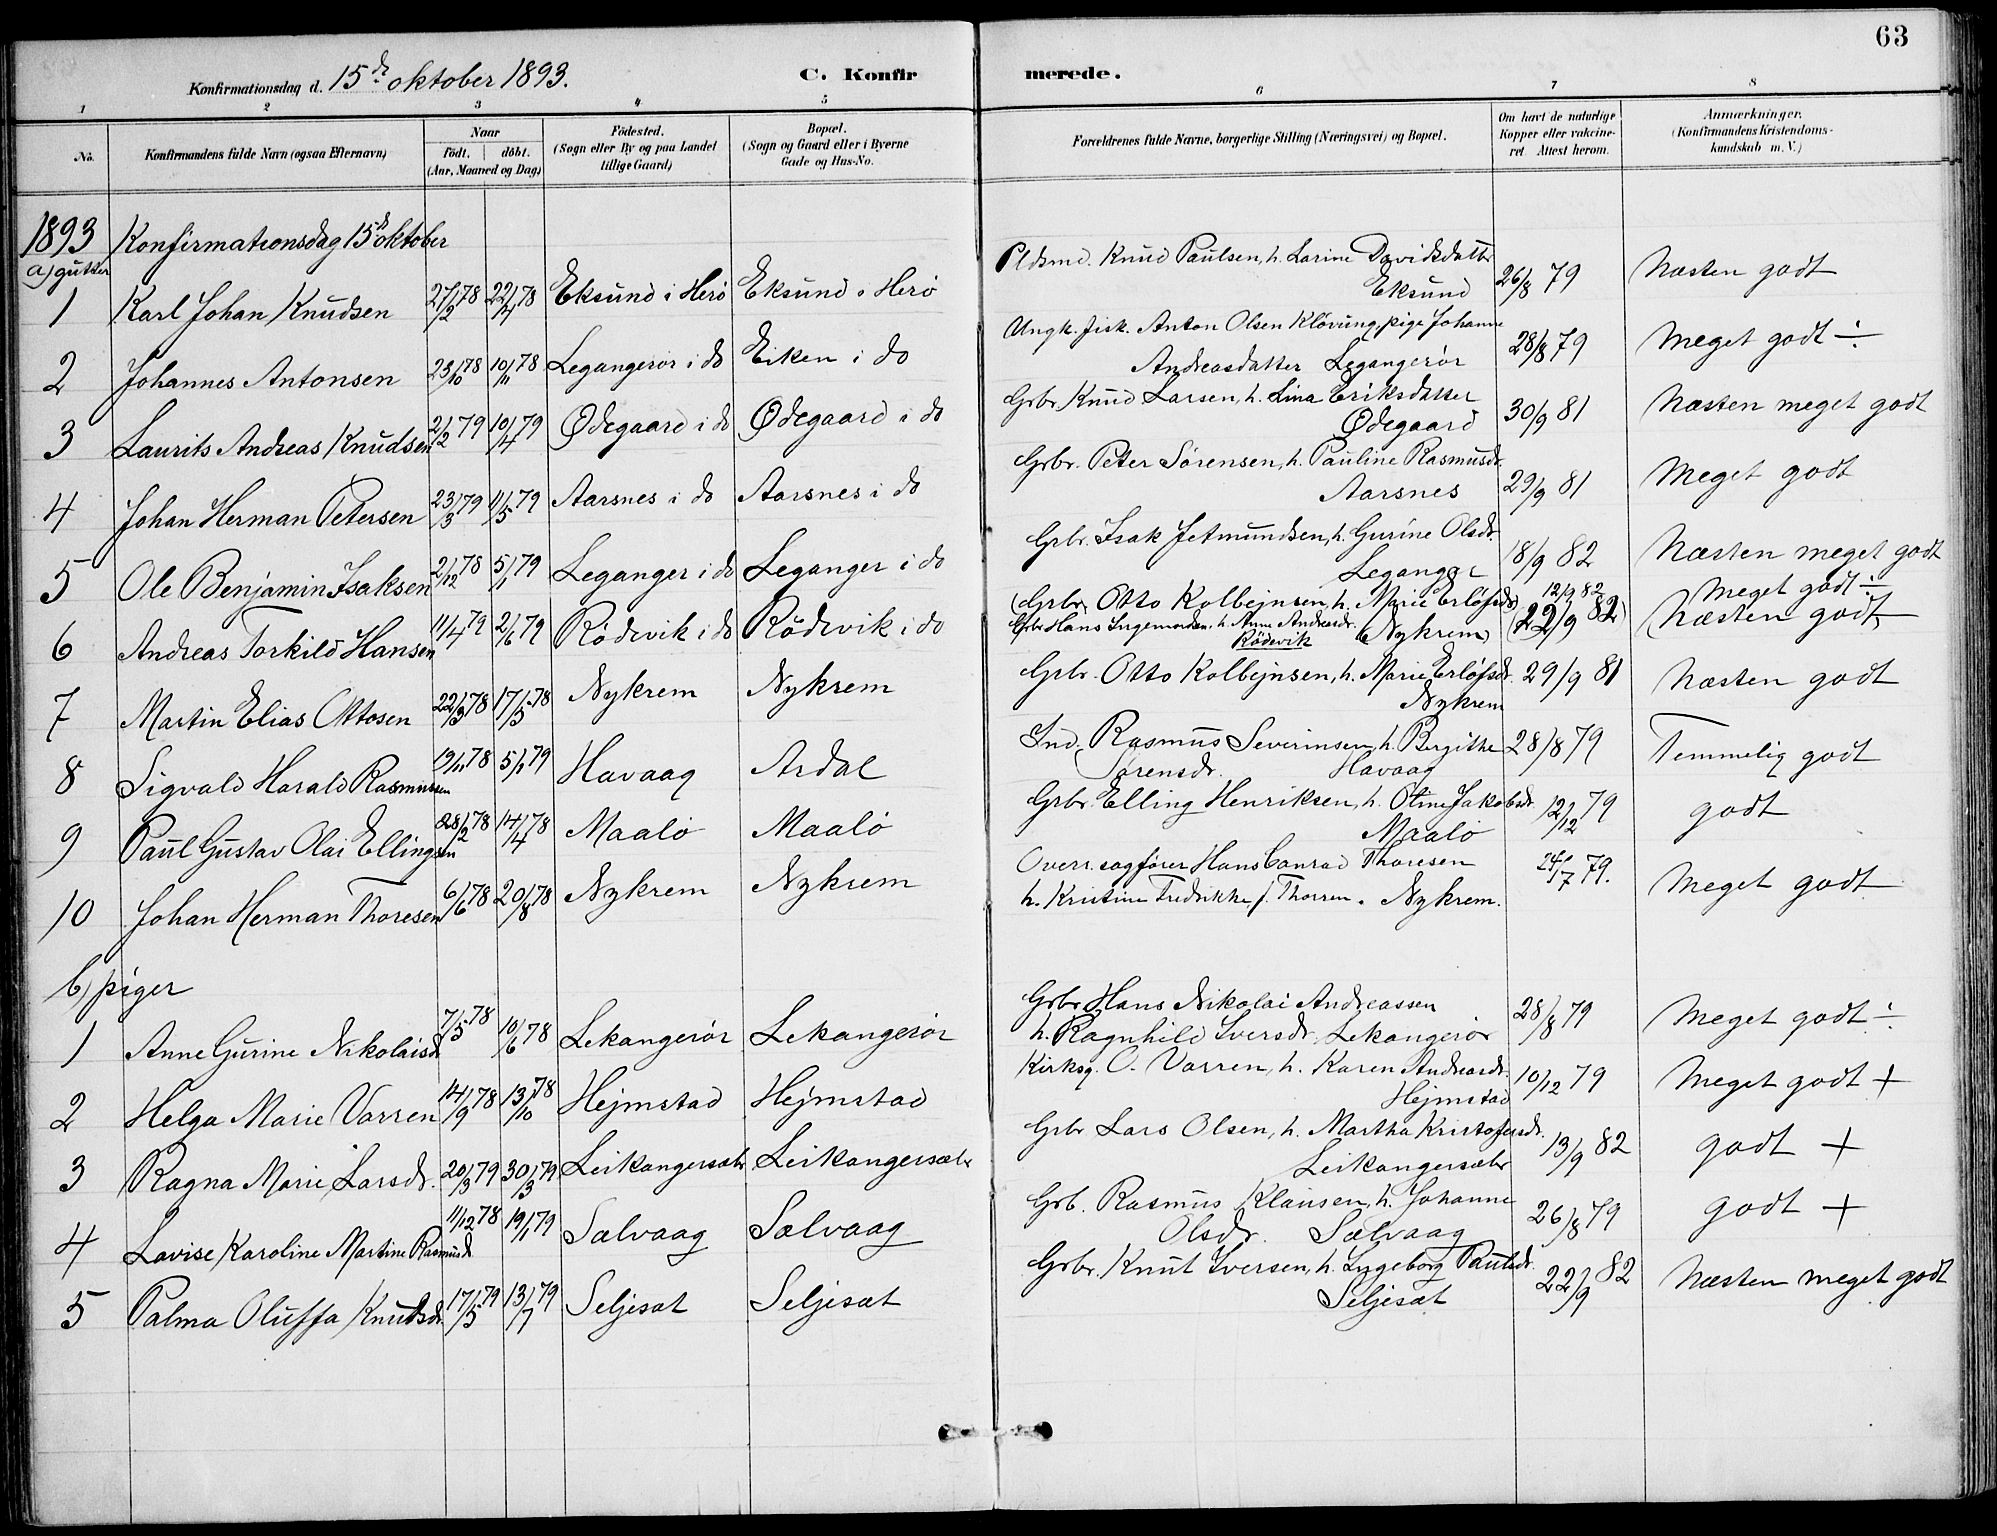 63
Konfirmationsdag d. 15de oktober 1893. C. Konfirmerede.
1 2 3 4 5 6 7 8
No. Konfirmandens fulde Navn (ogsaa Efternavn) Naar født. døbt. (Aar, Maaned og Dag) Födested. (Sogn eller By og paa Landet tillige Gaard) Bopæl. (Sogn og Gaard eller i Byerne Gade og Hus-No. Forældrenes fulde Navne, borgerlige Stilling (Næringsvei) og Bopæl. Om havt de naturlige Kopper eller vakcineret Attest herom. Anmærkninger. (Konfirmandens Kristendomskundskab m. V.)
1893 Konfirmationsdag 15de oktober
a) gutter
1 Karl Johan Knudsen 27/2 78 22/4 78 Eksund i Herö Eksund i Herö Pldsmd. Knud Paulsen, h. Larine Davidsdatter Eksund 26/8 79 Næsten godt
2 Johannes Antonsen 23/10 78 10/11 78 Legangerör i do Eiken i do Ungk. fisk. Anton Olsen Klövning, pige Johanne Andreasdatter Legangerör 28/8 79 Meget godt ÷
3 Laurits Andreas Knudsen 2/2 79 10/4 79 Ødegaard i do Ødegaard i do Grbr. Knud Larsen, h. Lina Eriksdatter Ødegaard 30/9 81 Næsten meget godt
4 Johan Herman Petersen 23/3 79 11/5 79 Aarsnes i do Aarsnes i do Grbr. Peter Sörensen, h. Pauline Rasmusdr. Aarsnes 29/9 81 Meget godt
5 Ole Benjamin Isaksen 2/12 78 5/1 79 Leganger i do Leganger i do Grbr. Isak Jetmundsen, h. Gurine Olsdr. Leganger 18/9 82 Næsten meget godt
6 Andreas Torkild Hansen 11/4 79 2/6 79 Rödsvik i do Rödsvik i do (Grbr. Otto Kolbejnsen, h. Marie Erlöfsdr) Nykrem (22/9 82) Næsten godt
Grbr Hans h. Anne Andrsdr. Rödsvik 12/9 82 Meget godt ÷
7 Martin Elias Ottosen 22/3 78 17/5 78 Nykrem Nykrem Grbr. Otto Kolbejnsen, h. Marie Erlöfsdr. Nykrem 29/9 81 Næsten godt
8 Sigvald Harald Rasmussen 19/11 78 5/1 79 Havaag Ardal Ind. Rasmus Severinsen, h. Bergithe Sörensdr. Havaag 28/8 79 Temmelig godt
9 Paul Gustav Olai Ellingsen 28/2 78 14/4 78 Maalö Maalö Grbr. Elling Henriksen, h. Oline Jakobsdr. Maalö 12/12 79 godt
10 Johan Herman Thoresen 6/6 78 20/8 78 Nykrem Nykrem Overr. sagförer Hans Conrad Thoresen h. Kristine Fredrikke f. Thorren. Nykrem. 24/7 79. Meget godt
b) piger
1 Anne Gurine Nikolaisdr 7/5 78 10/6 78 Lekangerör Lekangerör Grbr Hans Nikolai Andreassen h. Ragnhild Iversdr. Lekangerör 28/8 79 Meget godt ÷
2 Helga Marie Varren 14/9 78 13/10 78 Hejmstad Hejmstad Kirksg. O. Varren, h. Karen Andreasdr. Hejmstad 10/12 79 Meget godt +
3 Ragna Marie Larsdr. 20/3 79 30/3 79 Leikangersæter Leikangersæter Grbr Lars Olsen, h. Martha Kristofersdr. Leikangersæter 13/9 82 godt +
4 Lavise Karoline Martine Rasmusd 11/12 78 19/1 79 Sælvaag Sælvaag Grb. Rasmus Klausen, h. Johanne Olsdr. Sælvaag 26/8 79 godt +
5 Palma Oluffa Knudsdr. 17/5 79 13/7 79 Seljesæt Seljesæt Grbr. Knut Iversen, h. Ingeborg Paulsdr. Seljesæt 22/9 82 Næsten meget godt